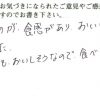 お気づきになられたご意見やご感
すのでお書き下さい。
が、食感があり、おいし
た。
もおいしそうなので食べ